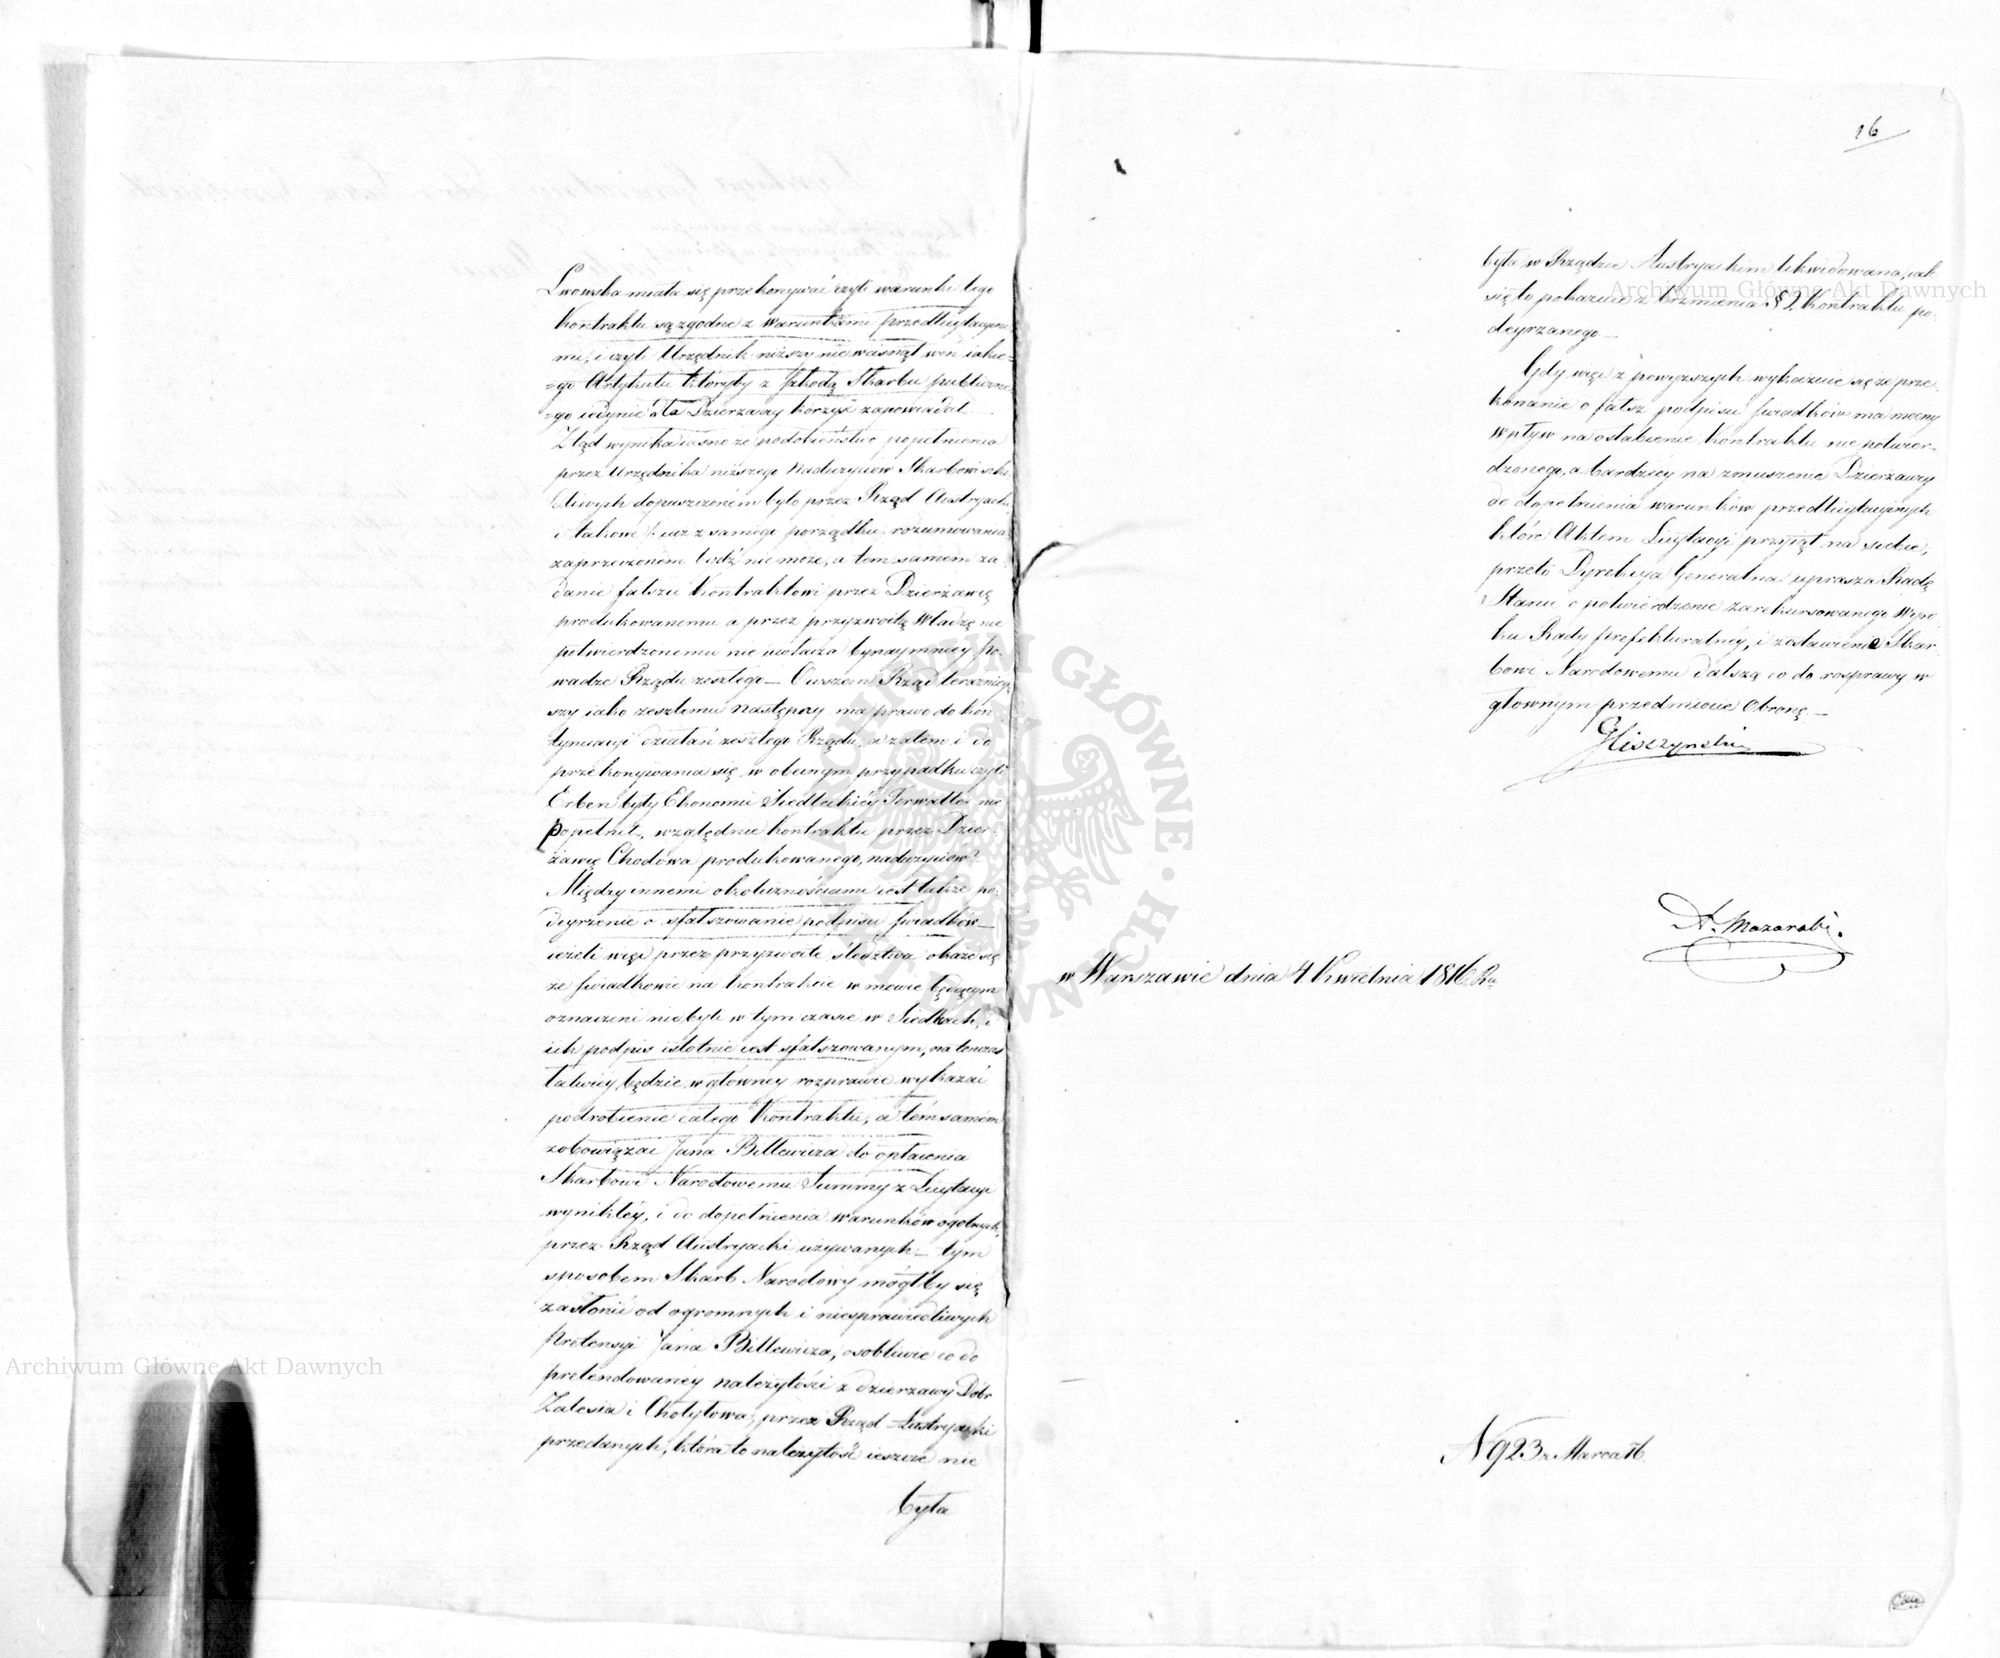 Lwowska miała się przekonywać czyli warunki tego
Kontraktu są zgodne z warunkami przedlicytacyine
mi, i czyli Urzędnik niższy nie wcisnął weń iakie=
=go Artykułu któryby z szkodą Skarbu publiczne
=go iedynie dla Dzierzawy korzyść zapowiadał.
Ztąd wynika iasno że podobieństwo popełnienia
przez Urzędnika niższego Nadużyciów Skarbowi szko
dliwych dopuszczonem było przez Rząd Austryacki
i takowe iuż z samego porządku rozumowania
zaprzeczonem bydź nie może, a tem samem za
danie fałszu Kontraktowi przez Dzierżawcę
produkowanemu a przez przyzwoitą Władzę nie
potwierdzonemu nie uwłacza bynaymniey po=
wadze Rządu zeszłego — Owszem Rząd teraźniey
szy iako zeszłemu następny ma prawo do kon
tynuacyi działań zeszłego Rządu, a zatem i do
przekonywania się w obecnym przypadku czyli
Erben były Ekonomii Siedleckiey Verwalter nie
popełnił, względnie Kontraktu przez Dzier
żawcę Chodowa produkowanego, nadużyciów?
Między innemi okolicznościami iest także po=
deyrzenie o sfałszowanie podpisu świadków —
ieżeli więc przez przyzwoite śledztwa okaże się
że świadkowie na kontrakcie w mowie będącym
oznaczeni nie byli w tym czasie w Siedlcach, i
ich podpis istotnie iest sfałszowanym, na tenczas
łatwiey będzie w główney rozprawie wykazać
podrobienie całego Kontraktu, a tém samém
zobowiązać Jana Billewicza do opłacenia
Skarbowi Narodowemu Summy z Licytacyi
wynikłéy, i do dopełnienia warunków ogólnych
przez Rząd Austryacki używanych — tym
sposobem Skarb Narodowy mógłby się
zasłonić od ogromnych i niesprawiedliwych
Pretensyi Jana Billewicza, osobliwie co do
pretendowanéy należytości z dzierżawy Dóbr
Zalesia i Chotyłowa, przez Rząd Austryacki
przedanych, która to należytość ieszcze nie
była
16
była w Rządzie Austryackim likwidowana, iak
się to pokazuie z brzmienia § 2 Kontraktu po=
deyrzanego —
Gdy więc z powyższych wykazuie się że prze
konanie o fałsz podpisu świadków ma mocny
wpływ na osłabienie kontraktu nie potwier=
dzonego, a bardziey na zmuszenie Dzierżawcy
do dopełnienia warunków przedlicytacyinych
które Aktem Licytacyi przyiął na siebie,
przeto Dyrekcya Generalna uprasza Radę
Stanu o potwierdzenie zarekursowanego Wyro
ku Rady prefekturalnéy, i zostawienie Skar
bowi Narodowemu dalszą co do rosprawy w
głównym przedmiocie Obronę —
Gliszczynski
A. Mazaraki.
w Warszawie dnia 4 Kwietnia 1816 Ru.
N 923 z Marca 16
Archiwum Główne Akt Dawnych
Archiwum Główne Akt Dawnych